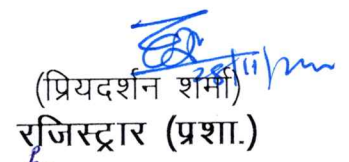 28/11/
(प्रियदर्शन शर्मा)
रजिस्ट्रार (प्रशा.)